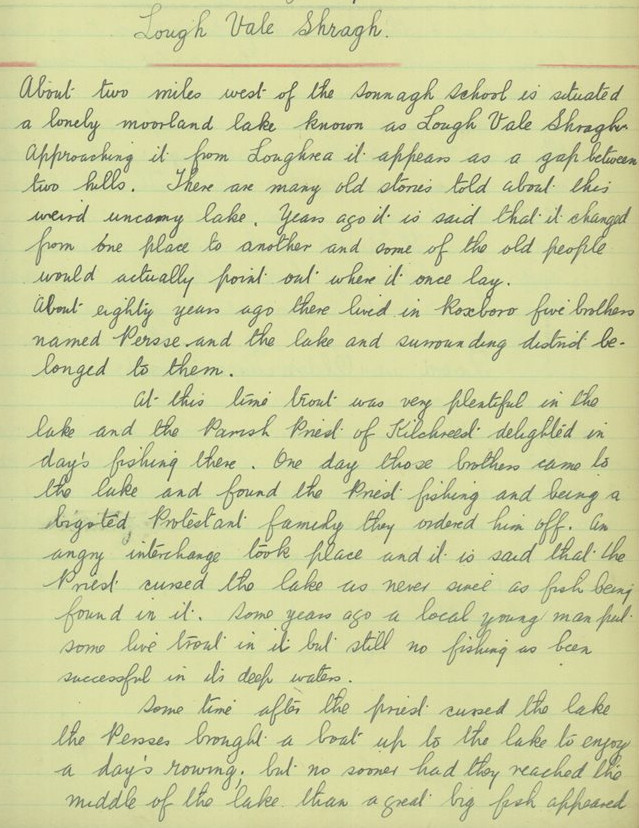 Lough Vale Shragh.
About two miles west of the Sonnagh School is situated
a lonely moorland lake known as Lough Vale Shragh.
Approaching it from Loughrea it appears as a gap between
two hills. There are many old stories told about this
weird uncanny lake. Years ago it is said that it changed
from one place to another and some of the old people
would actually point out where it once lay.
About eighty years ago there lived in Roxboro five brothers
named Persse and the lake and surrounding district be-
longed to them.
At this time trout was very plentiful in the
lake and the Parish Priest of Kilchreest delighted in
day's fishing there. One day those brothers came to
the lake and found the Priest fishing and being a
bigoted Protestant family they ordered him off. An
angry interchange took place and it is said that the
Priest cursed the lake as never since as fish being
found in it. Some years ago a local young man put
some live trout in it but still no fishing as been
successful in its deep waters.
Some time after the priest cursed the lake
the Persses brought a boat up to the lake to enjoy
a day's rowing, but no sooner had they reached the
middle of the lake than a great big fish appeared